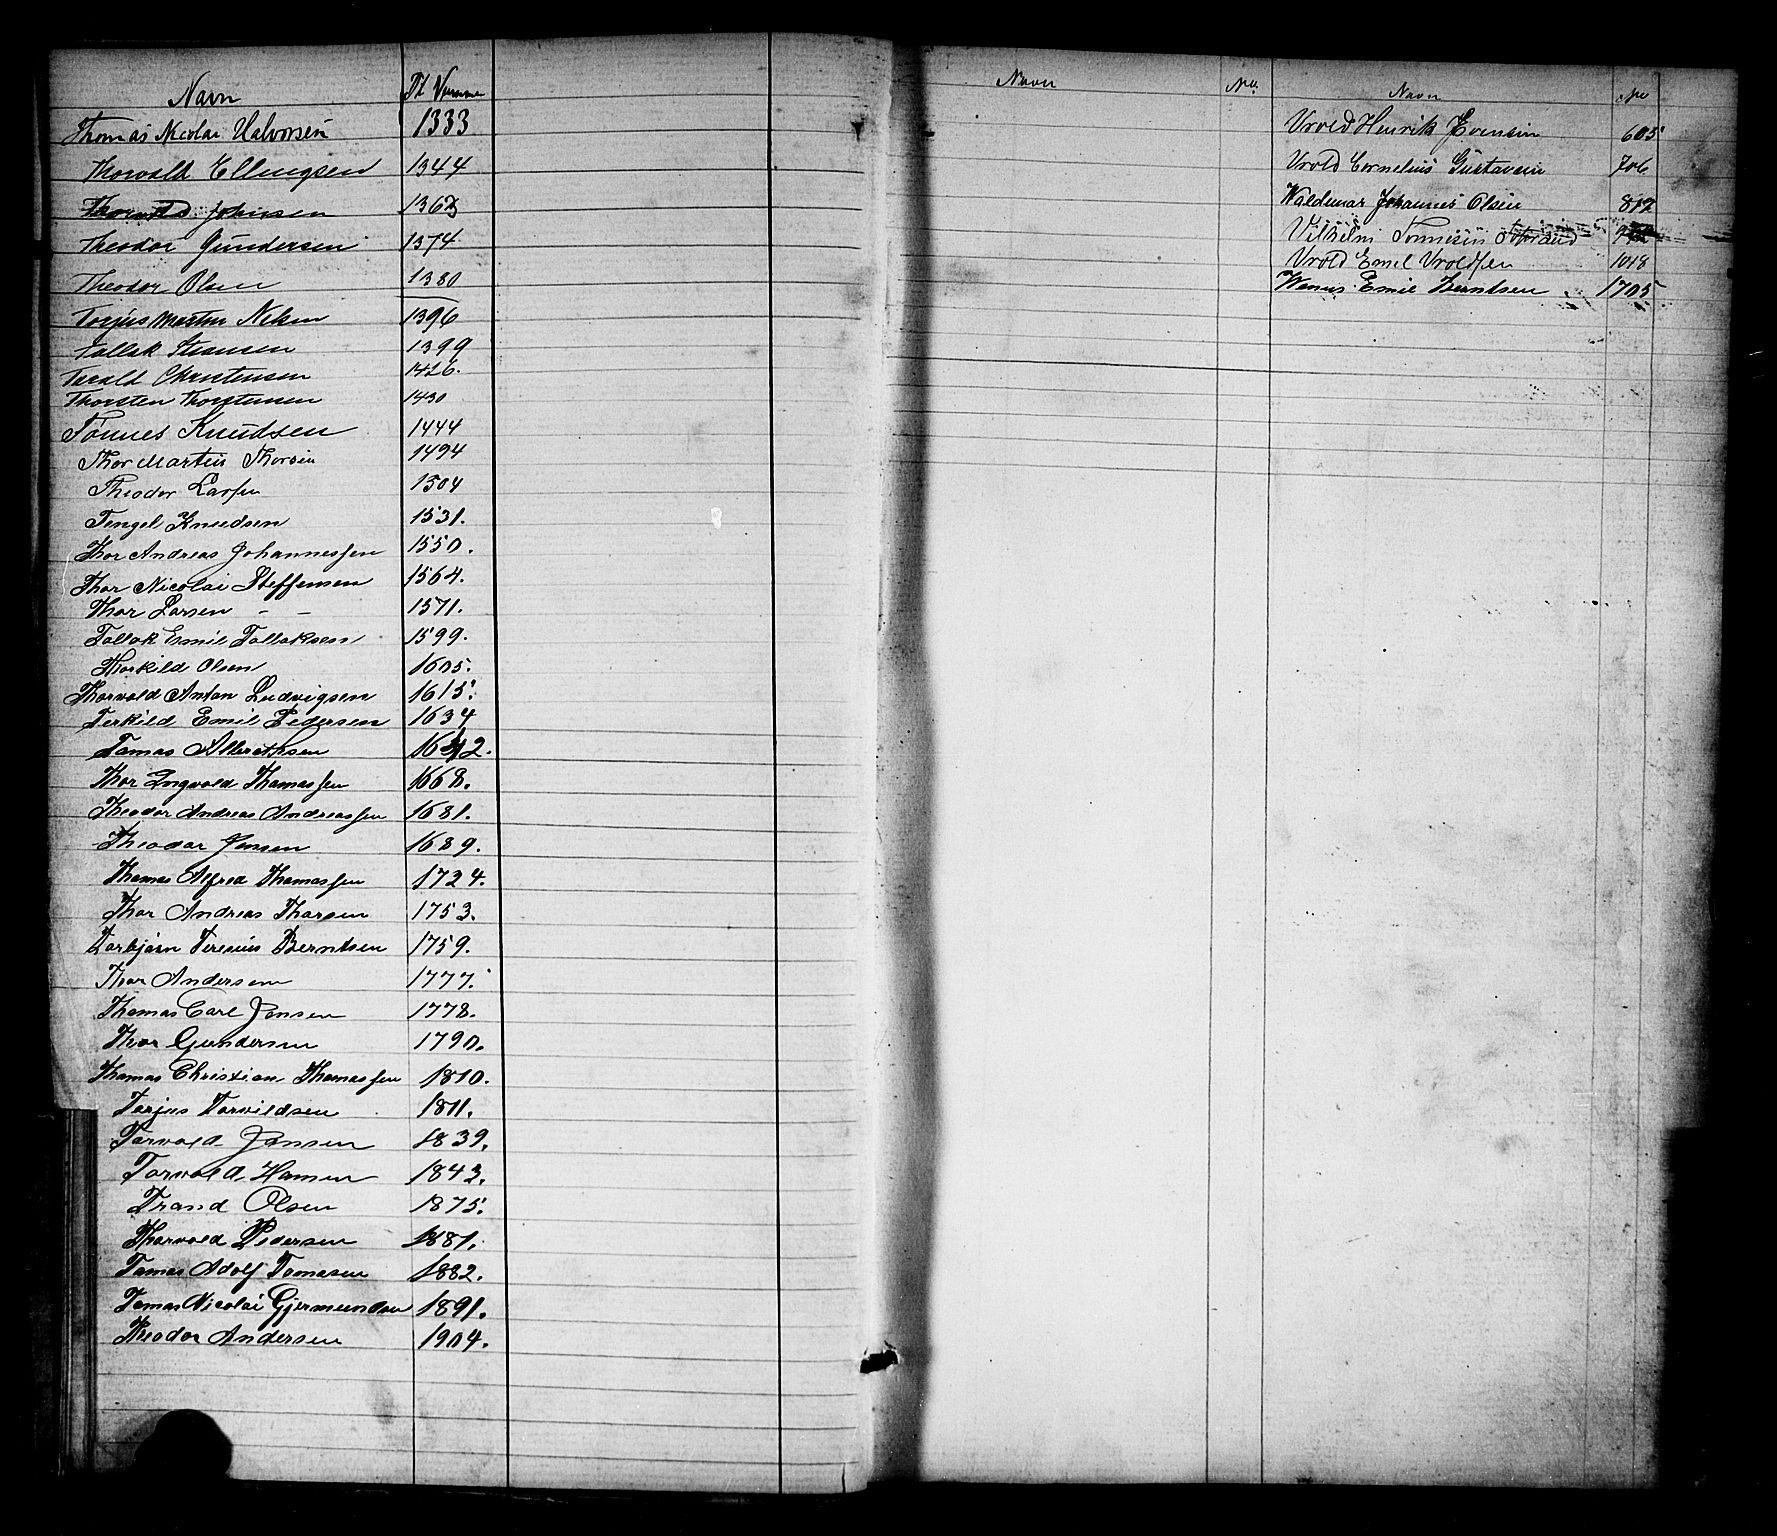 Navn
Thomas Nicolai Halvorsen 1333
Thorvald Ellingsen 1344
Johnsen 1363
Theodor Gundersen 1374
Theodor Olsen 1380
Torjus Martin Nilsen 1396
Tallak Stiansen 1399
Terald Christensen 1426.
Thorsten Thorstensen 1430
Tønnes Knudsen 1444
Thor Martin Thorsen 1494
Theodor Larsen 1504
Tengel Knudsen 1531.
Thor Andreas Johannessen 1550.
Thor Nicolai Steffensen 1564.
Thor Larsen - - 1571.
Tallak Emil Tallaksen 1599.
Thorkild Olsen 1605.
Thorvald Anton Ludvigsen 1615.
Terkild Emil Pedersen 1634
Tomas Albretsen 1642.
Thor Ingvald Thomassen 1668.
Theodor Andreas Andreassen 1681.
Theodor Jensen 1689.
Thomas Alfred Thomassen 1724.
Thor Andreas Thorsen 1753.
Torbjørn Teresius Berntsen 1759.
Thor Andersen 1777.
Thomas Carl Jensen 1778.
Thor Gundersen 1790.
Thomas Christian Thomassen 1810.
Terjus Torvildsen 1811.
Torvald Jansen 1839.
Torvald Hansen 1843.
Trand Olsen 1875.
Thorvald Pedersen 1881.
Tomas Adolf Tomasen 1882.
Tomas Nicolai Gjermundsen 1891.
Theodor Andersen 1904.
Navn No. Navn No
Vrold Henrik Evensen 605
Vrold Cornelius Gustavsen 706
Valdemar Johannes Olsen 812
Vilhelm Tønnesen
Vrold Emil Vroldsen 1018
Wenus Emil Berntsen 1705